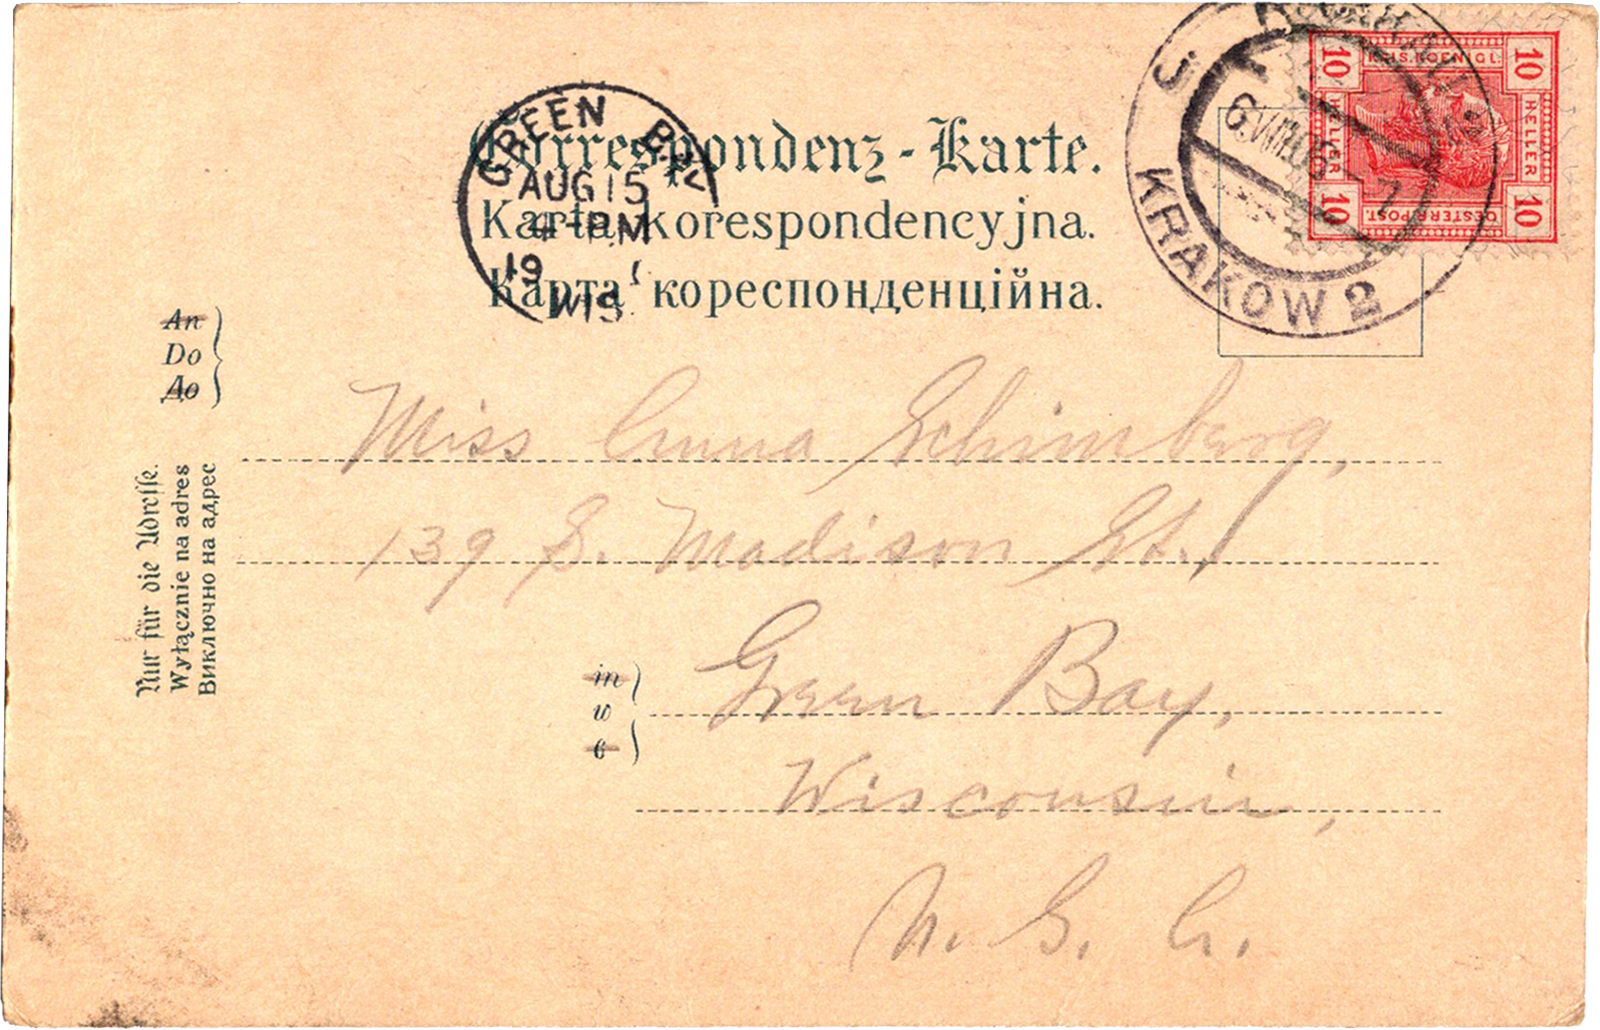 Correspondenz-Karte.
Karta korespondencyjna.
Карта кореспонденційна.
GREEN BAY
AUG 15
4-PM
19
WIS.
KRAKÓW 2
6.VIII.06-7
10 10
K.K. OESTERR. POST.
HELLER HELLER
10 10
An
Do
До
Nur für die Adresse.
Wyłącznie na adres
Виключно на адрес
Miss Anna Schimberg,
139 S. Madison St.,
in
w
в
Green Bay,
Wisconsin,
U. S. A.